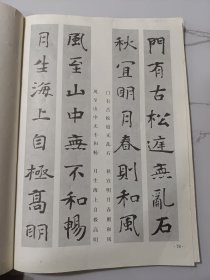 門有古松庭無亂石
秋宜明月春則和風
門有古松庭無亂石　秋宜明月春則和風
風至山中無不和暢　月生海上自極高明
風至山中無不和暢
月生海上自極高明